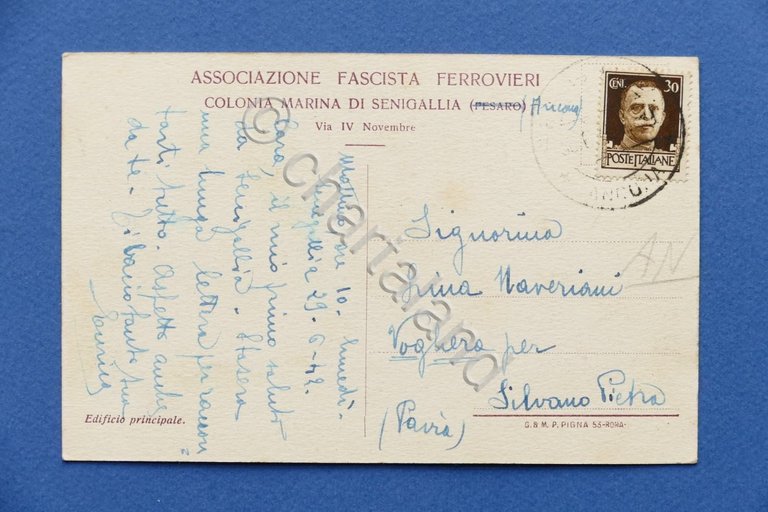 ASSOCIAZIONE FASCISTA FERROVIERI
COLONIA MARINA DI SENIGALLIA (PESARO) (Ancona)
Via IV Novembre
CENI. 30
POSTE ITALIANE
ANCONA
Mattino ore 10. lunedì.
Senigallia 29.6.42.
Cara, il mio primo saluto
da Senigallia. Stasera
una lunga lettera per raccon
tarti tutto. Aspetto anche
da te. Ti bacio tanto tua
Signorina
Irina Naveriani
Voghera per
Silvano Pietra
(Pavia)
AN
Edificio principale.
G. & M. P. PIGNA 53-ROMA-
© chartaland